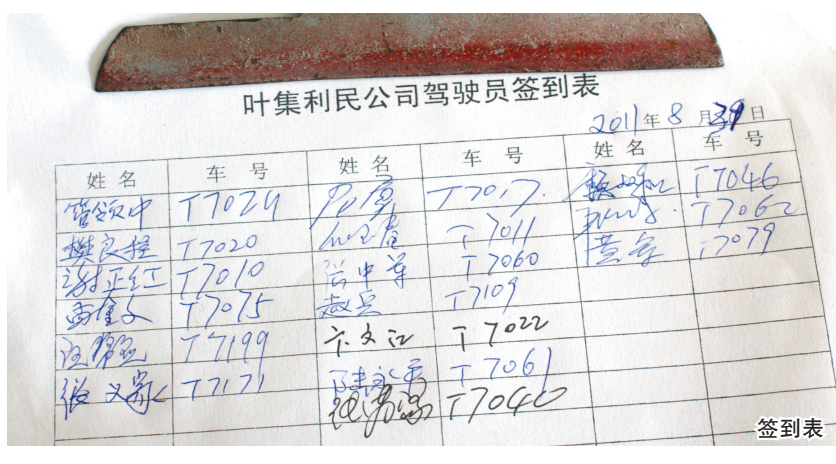 叶集利民公司驾驶员签到表
2011年8月31日
姓名 车号 姓名 车号 姓名 车号
管领中 T7024 T7017 T7046
樊良控 T7020 T7011 T7062
谢正红 T7010 张中军 T7060 黄 T7079
雷 T7075 赵兵 T7109
T7199 卞文江 T7022
张义 T7171 陈 T7061
T7040
签到表